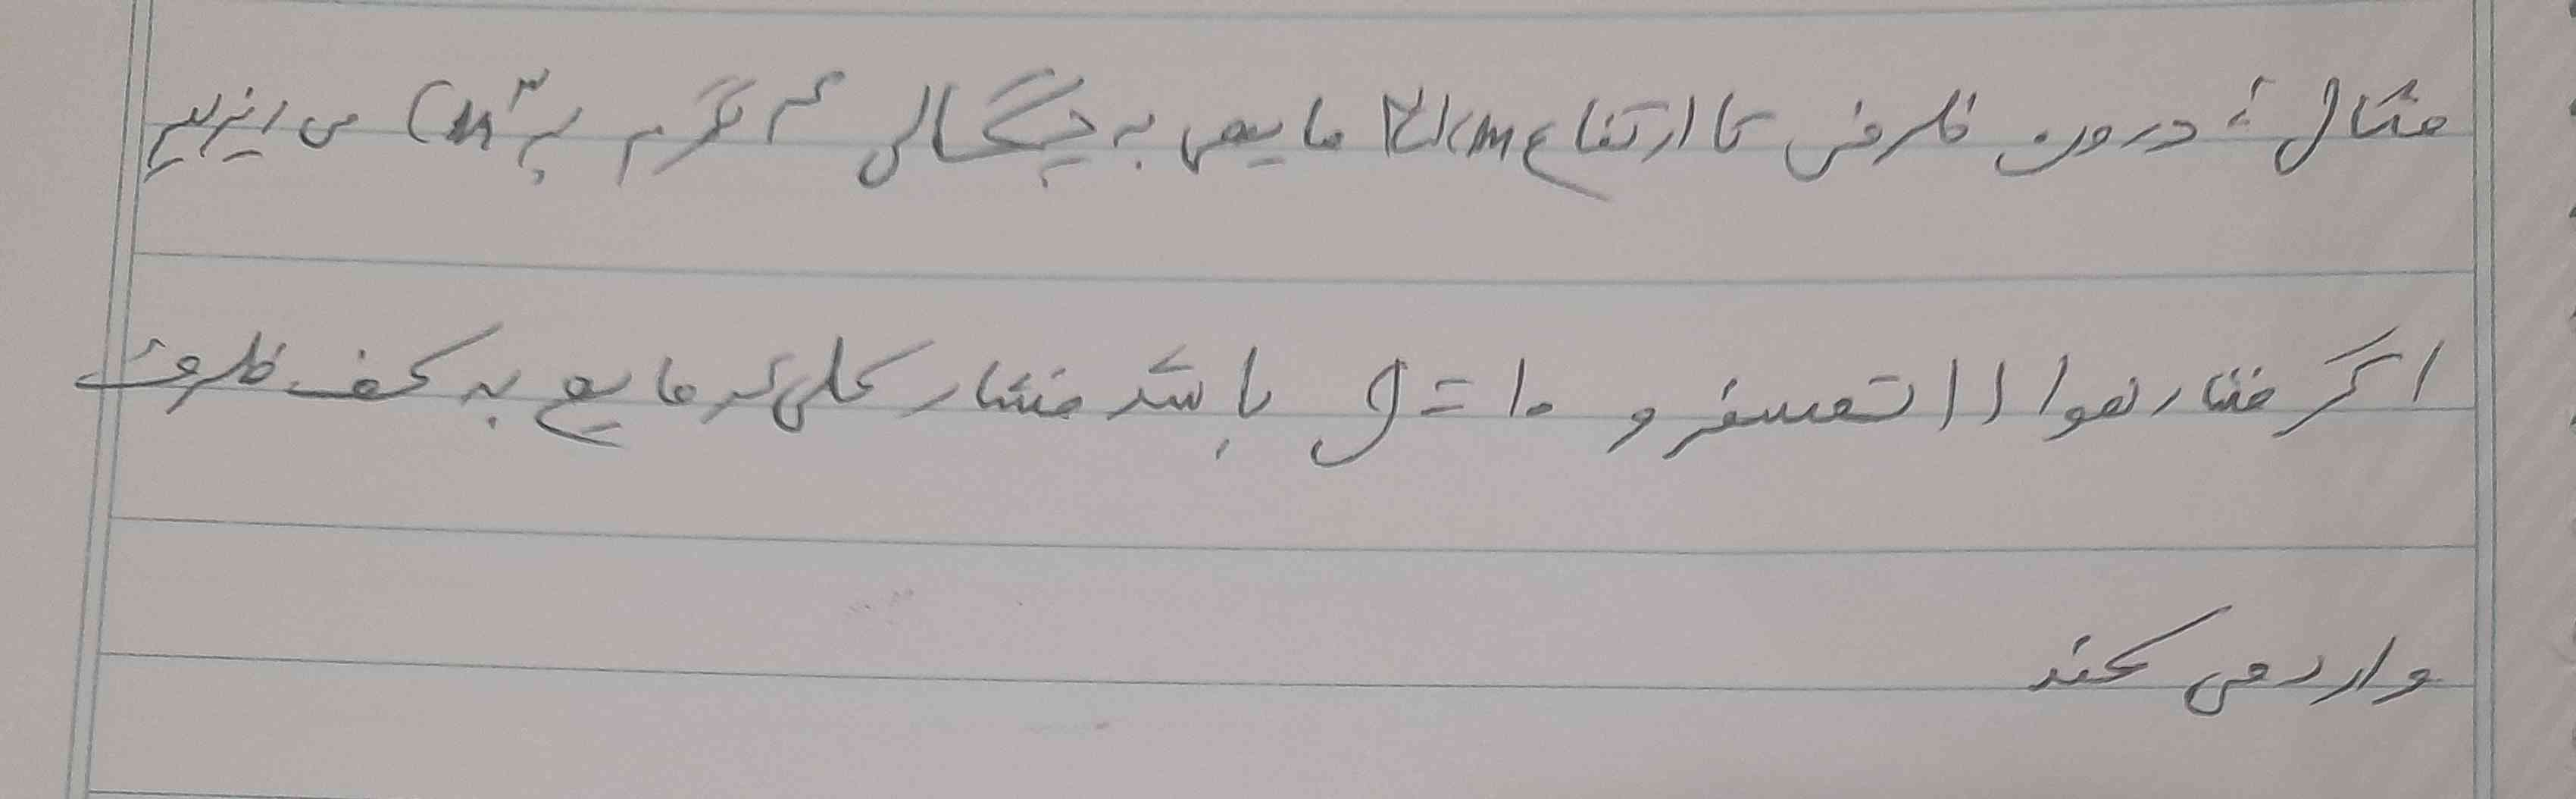 مثال : درون ظرفی تا ارتفاع cm مایعی به چگالی گرم بر cm³ می ریزیم
اگر فشار هوا ۱ اتمسفر و g = ۱۰ باشد فشار کلی که مایع به کف ظرف
وارد می کند